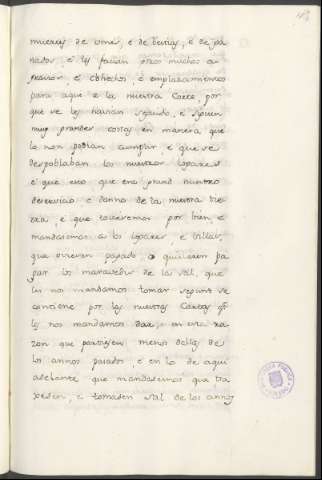 mueras de ome, e de bestias, e de ga
nados, e les facian otros muchos a
gravios, e cohechos e emplazamientos
para aque e la nuestra Corte, por
que se les havian seguido, e siguen
muy grandes costas en manera que
lo non podian cumplir e que se
despoblaban los nuestros logares
e que esto, que era grand nuestro
deservicio e danno de la nuestra tie
rra, e que toviesemos por bien, e
mandasemos a los logares, e villas,
que ovieren pagado, o quisieren pa
gar los maravedis de la sal, que
les nos mandamos tomar segund se
contiene por las nuestras Cartas q̃
les nos mandamos dar, en esta ra
zon que pagasen menos dellos de
los annos pasados, e en lo de aqui
adelante que mandasemos que tra
xesen, e tomasen sal de los annos